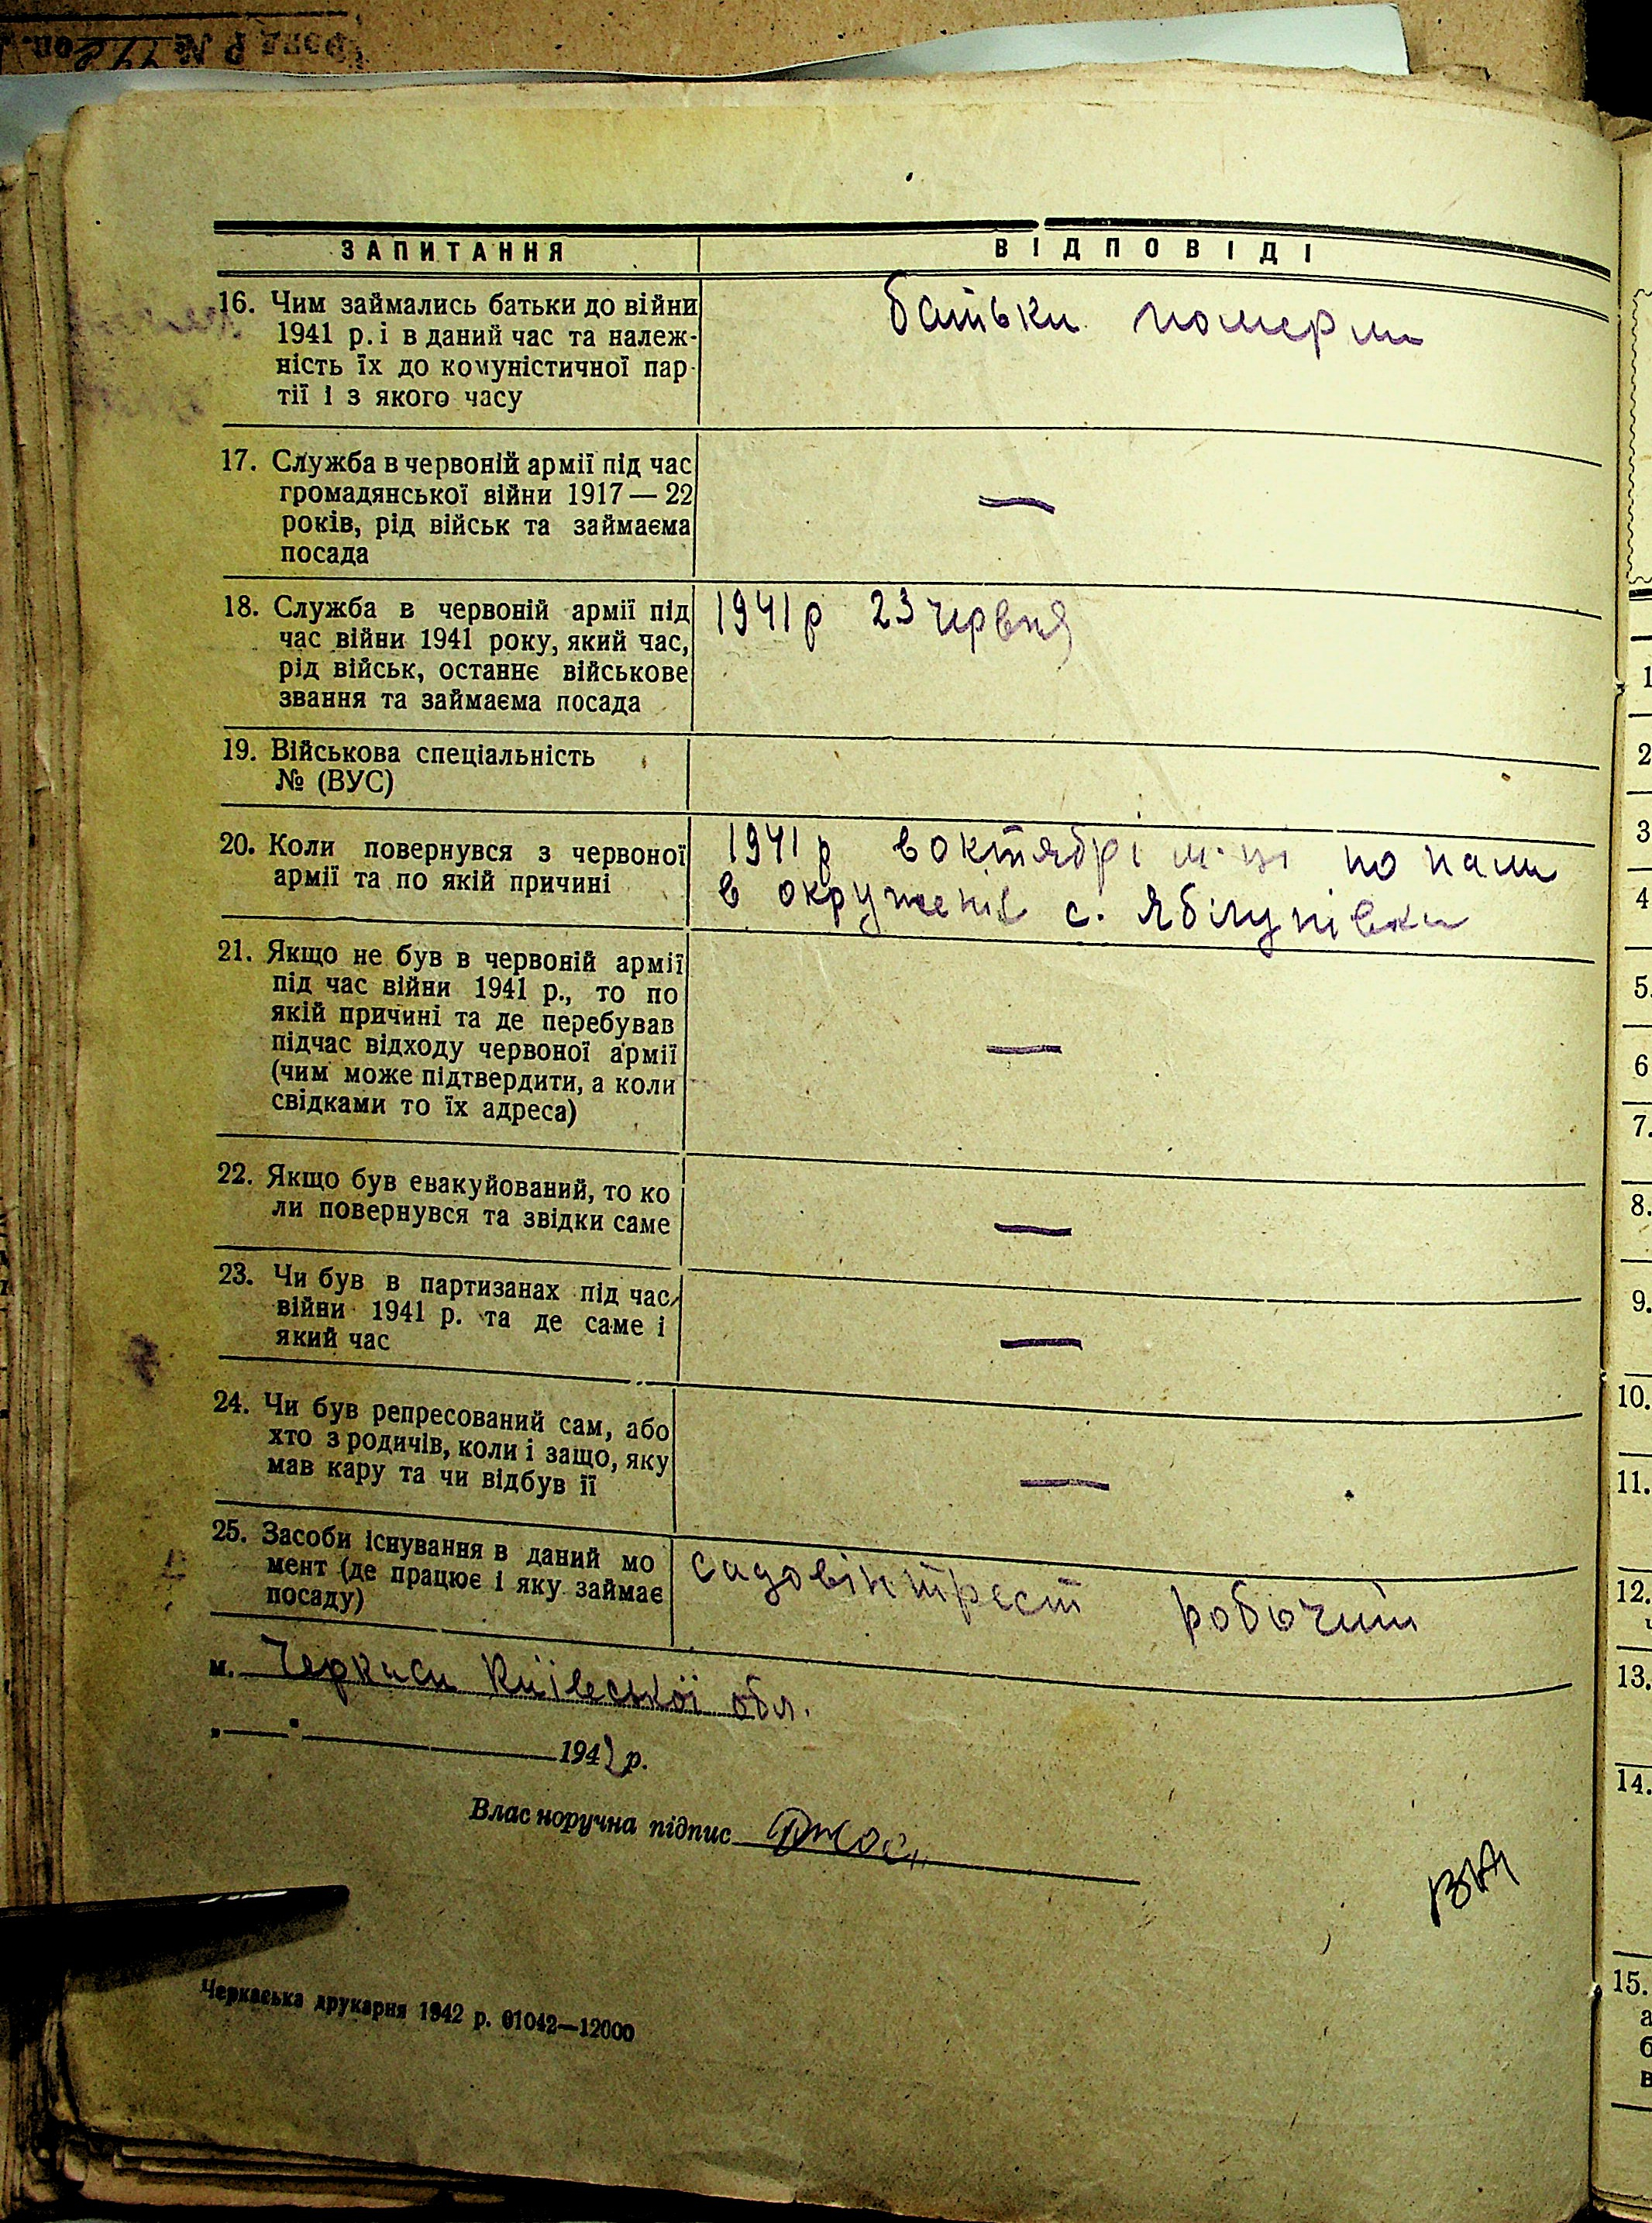 ЗАПИТАННЯ ВІДПОВІДІ
16. Чим займались батьки до війни
1941 р. і в даний час та належ-
ність їх до комуністичної пар-
тії і з якого часу
батьки померли
17. Служба в червоній армії під час
громадянської війни 1917 — 22
років, рід військ та займаєма
посада
—
18. Служба в червоній армії під
час війни 1941 року, який час,
рід військ, останнє військове
звання та займаєма посада
1941 р 23 червня
19. Військова спеціальність
№ (ВУС)
20. Коли повернувся з червоної
армії та по якій причині
1941 р в октябрі м-ці попали
в окруженіє с. Яблунівки
21. Якщо не був в червоній армії
під час війни 1941 р., то по
якій причині та де перебував
підчас відходу червоної армії
(чим може підтвердити, а коли
свідками то їх адреса)
—
22. Якщо був евакуйований, то ко
ли повернувся та звідки саме
—
23. Чи був в партизанах під час
війни 1941 р. та де саме і
який час
—
24. Чи був репресований сам, або
хто з родичів, коли і защо, яку
мав кару та чи відбув її
—
25. Засоби існування в даний мо
мент (де працює і яку займає
посаду)
садовінтрест робочий
м. Черкаси Київської обл.
1942 р.
Власноручна підпис
Черкаська друкарня 1942 р. 01042—12000
1
2
3
4
5.
6
7.
8.
9.
10.
11.
12.
13.
14.
15.